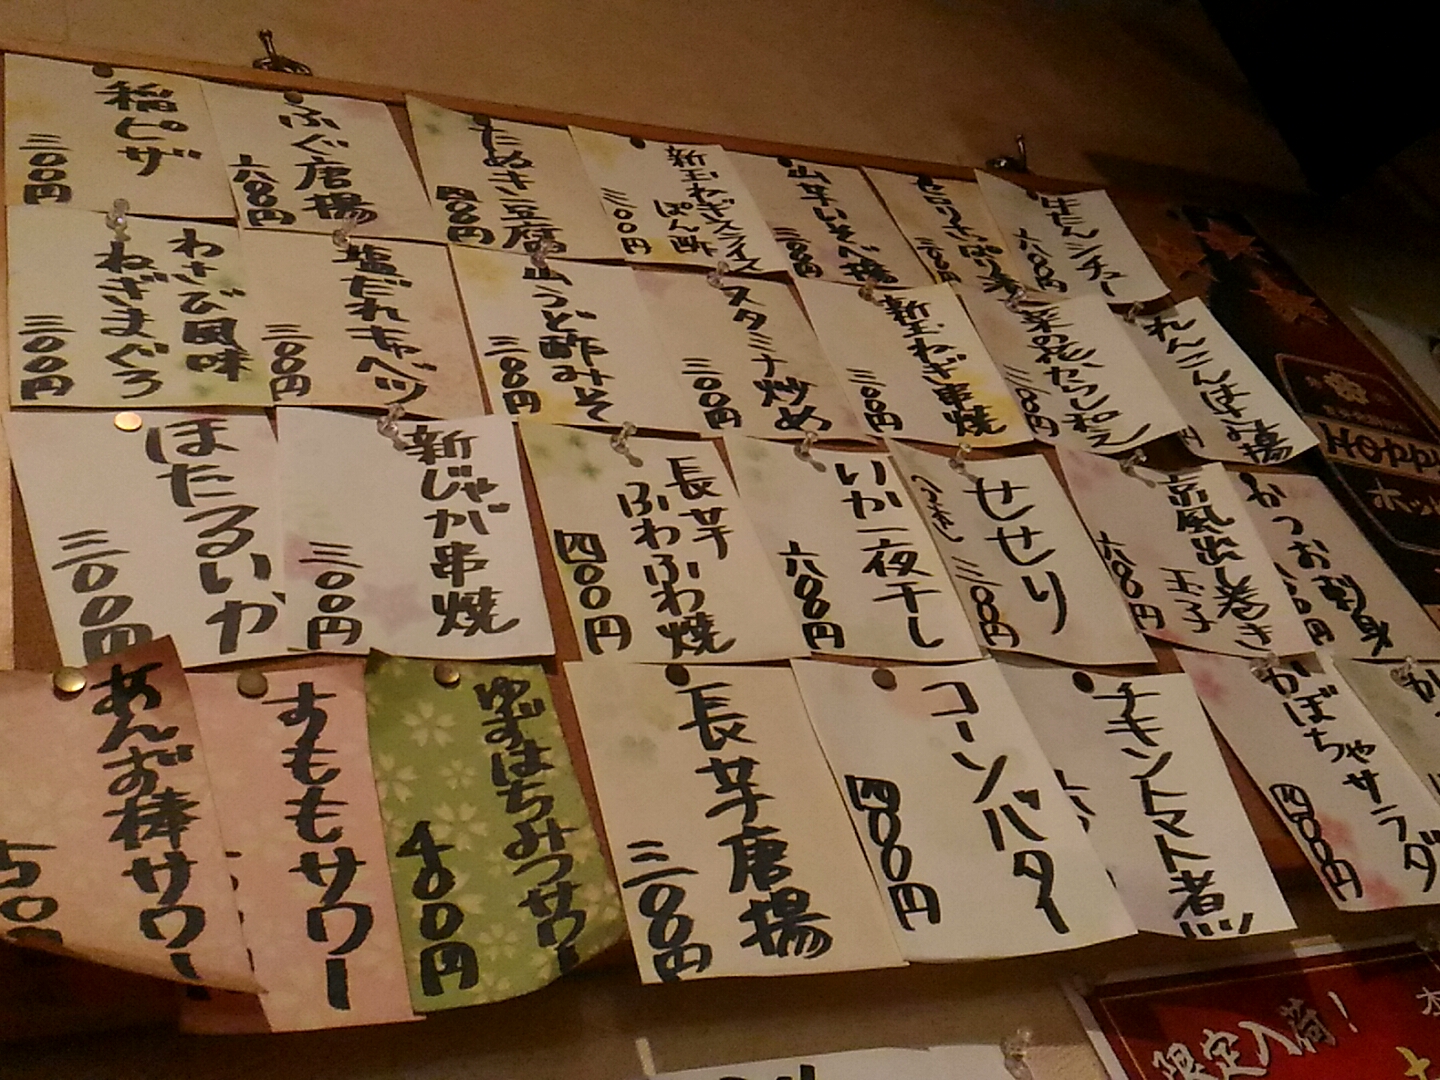 稲ピザ
三〇〇円
ふぐ唐揚
六〇〇円
たぬき豆腐
四〇〇円
新玉ねぎスライス
ぽん酢
三〇〇円
山芋いそべ揚
三〇〇円
三〇〇円
牛たんシチュー
六〇〇円
わさび風味
ねぎまぐろ
三〇〇円
塩だれキャベツ
三〇〇円
山うど酢みそ
三〇〇円
スタミナ炒め
三〇〇円
新玉ねぎ串焼
三〇〇円
菜の花からし和え
三〇〇円
れんこんはさみ揚
円
ほたるいか
三〇〇円
新じゃが串焼
三〇〇円
長芋
ふわふわ焼
四〇〇円
いか一夜干し
六〇〇円
せせり
三〇〇円
京風出し巻き
玉子
六〇〇円
かつお刺身
六〇〇円
あんず棒サワー
五〇〇
すももサワー
ゆずはちみつサワー
400円
長芋唐揚
三〇〇円
コーンバター
四〇〇円
チキントマト煮
かぼちゃサラダ
四〇〇円
か
限定入荷!
本
HOPPY
ホッ